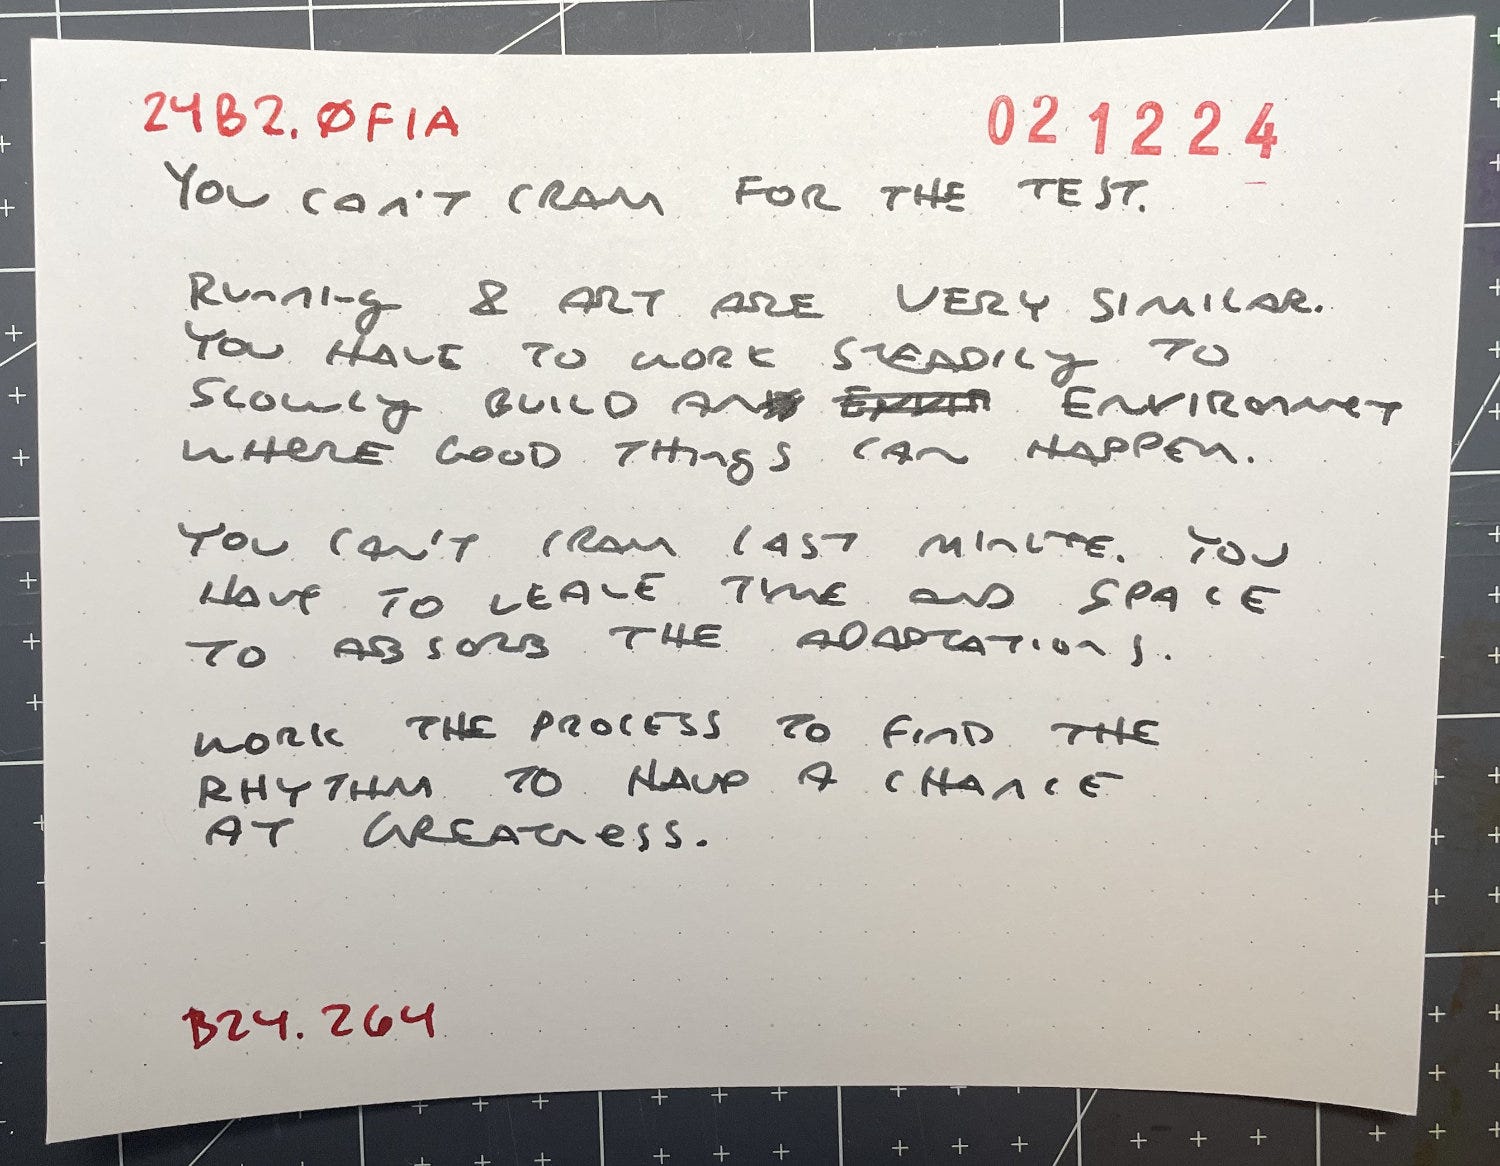 24B2.ØF1A 021224
YOU CAN'T CRAM FOR THE TEST.
Running & ART ARE VERY SIMILAR.
YOU HAVE TO WORK STEADILY TO
SLOWLY BUILD AN ENVIRONMET
WHERE GOOD THINGS CAN HAPPEN.
YOU CAN'T CRAM LAST MINUTE. YOU
HAVE TO LEAVE TIME AND SPACE
TO ABSORB THE ADAPTATIONS.
WORK THE PROCESS TO FIND THE
RHYTHM TO HAVE A CHANCE
AT GREATNESS.
B24.264